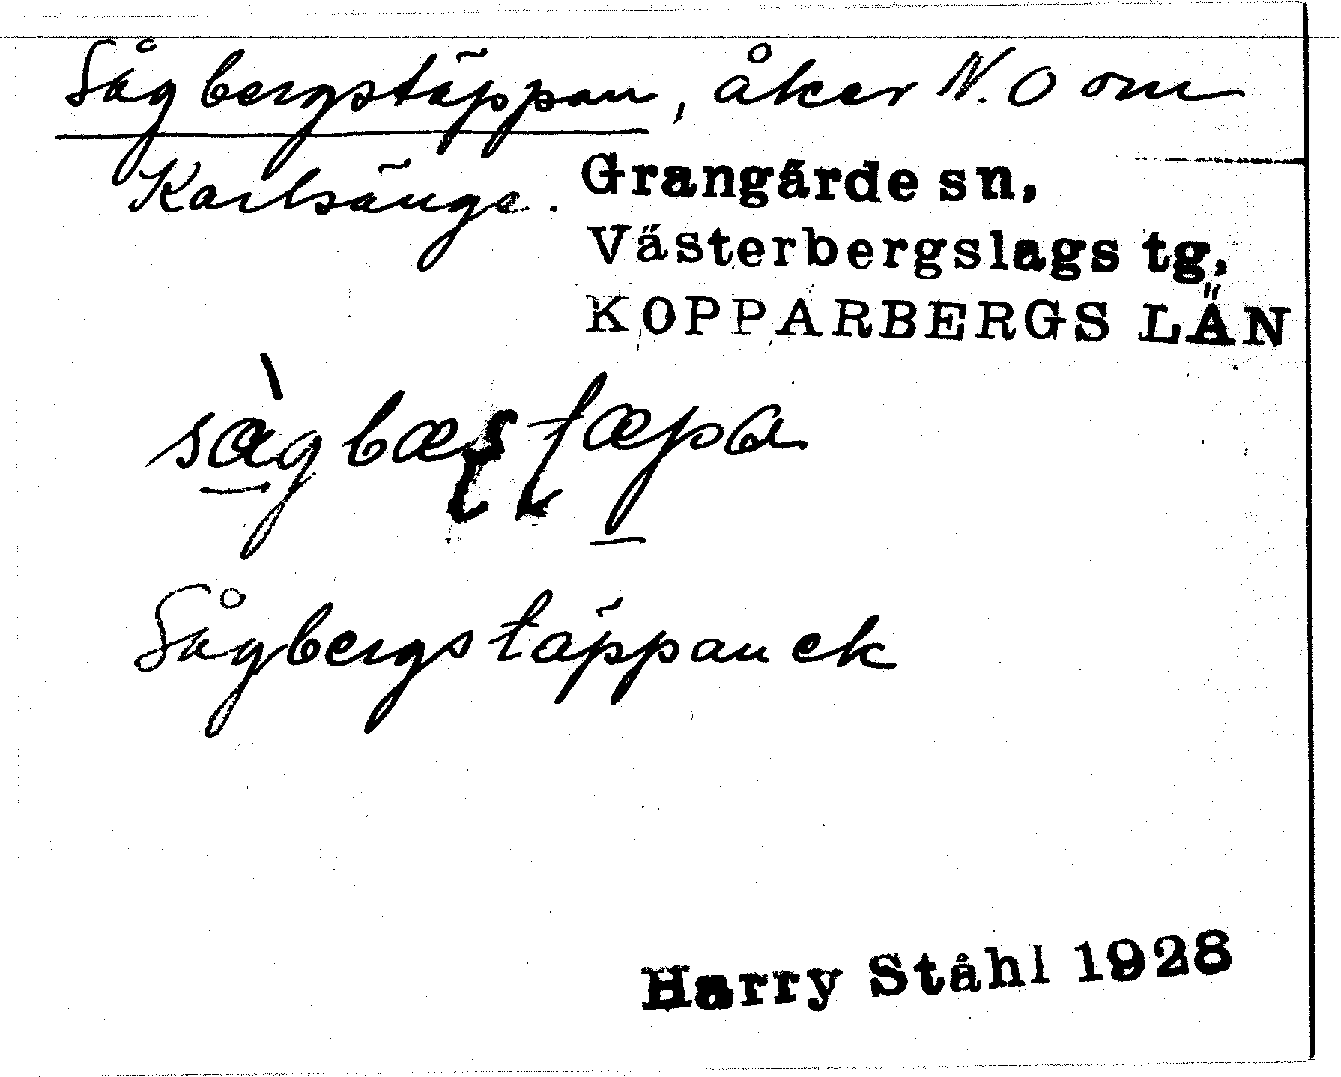 Sågbergstäppan, åker N.O om
Karlsänge.
Grangärde sn,
Västerbergslags tg,
KOPPARBERGS LÄN
Sågbergstäppan ek
Harry Ståhl 1928